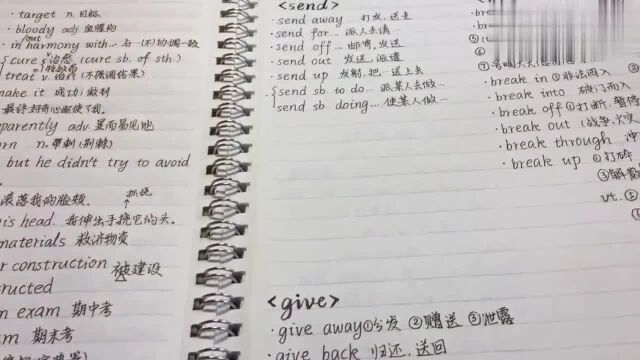 · target n. 目标
· bloody adj 血腥的
· in/out harmony with… 与…(不)协调一致
cure v.治愈 (cure sb. of sth.)
n.特效药
treat v. 治疗 (不强调结果)
make it 成功;做到
最终好奇心驱使了我。
parently adv 显而易见地
orn n. 带刺(荆棘)
but he didn't try to avoid
滚落我的脸颊.
抓挠
his head. 我伸出手挠它的头。
materials 救济物资
r construction 被建设
ructed
n exam 期中考
m 期末考
<send>
· send away 打发,送走
· send for… 派人去请
· send off… 邮寄,发送
· send out 发送,派遣
· send up 发射,把…送上去
send sb. to do… 派某人去做…
send sb. doing… 使某人做…
<give>
· give away ①分发 ②赠送 ③泄露
· give back 归还,送回
break
break
· break in ①非法闯入
· break into 破门而入
· break off ①打断,暂停
· break out (战争,火灾
· break through 冲
· break up ①打碎
③解散
vt. ①